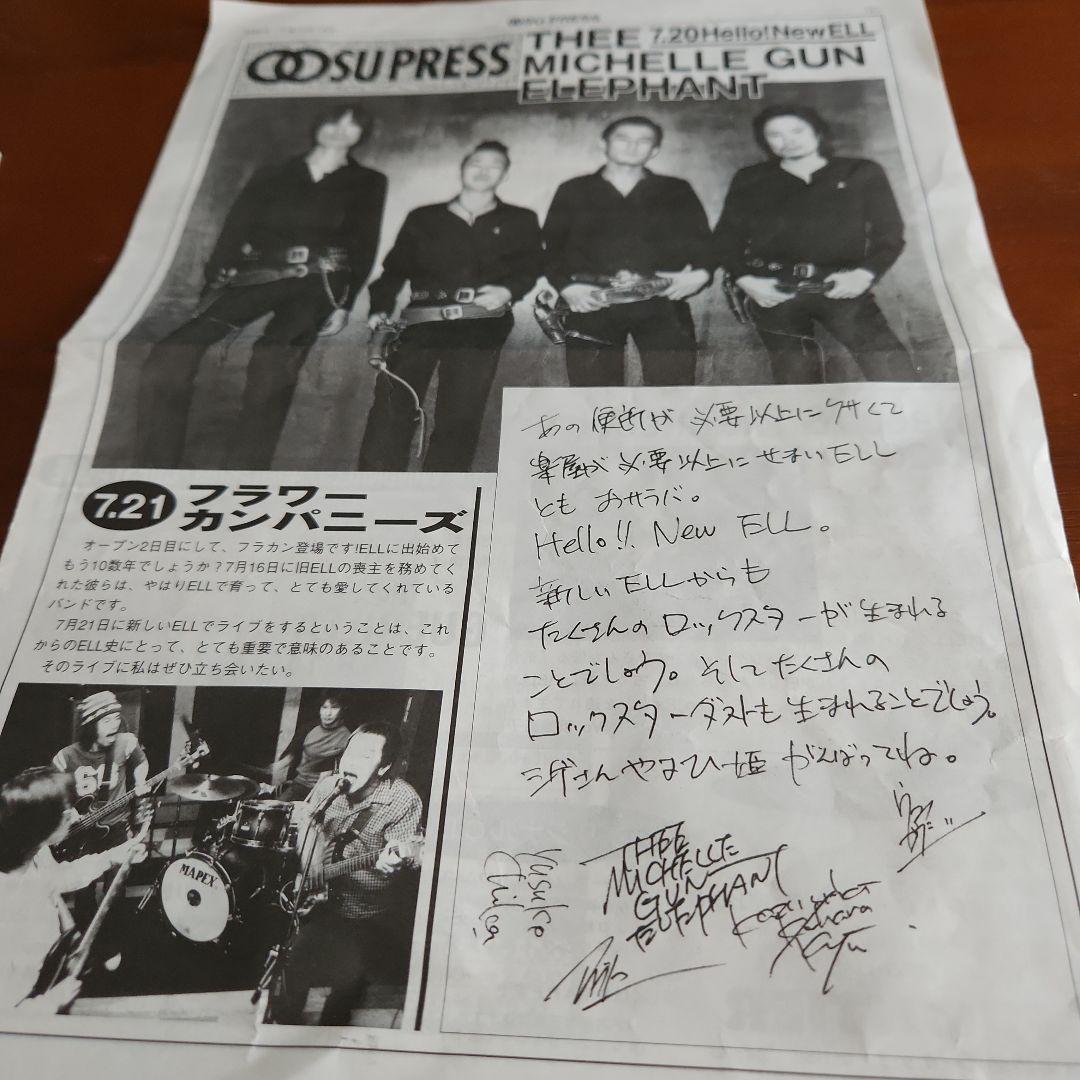 OOSU PRESS
THEE 7.20Hello!NewELL
MICHELLE GUN
ELEPHANT
7.21 フラワー
カンパニーズ
オープン2日目にして、フラカン登場です!ELLに出始めて
もう10数年でしょうか?7月16日に旧ELLの喪主を務めてく
れた彼らは、やはりELLで育って、とても愛してくれている
バンドです。
7月21日に新しいELLでライブをするということは、これ
からのELL史にとって、とても重要で意味のあることです。
そのライブに私はぜひ立ち会いたい。
MAPEX
あの便所が必要以上にクサくて
楽屋が必要以上にせまいELL
ともおサラバ。
Hello!! New ELL。
新しいELLからも
たくさんのロックスターが生まれる
ことでしょう。そしてたくさんの
ロックスターダストも生まれることでしょう。
シゲさんやまひ姫がんばってね。
Yusuke
Chiba
THEE
MICHELLE
GUN
ELEPHANT